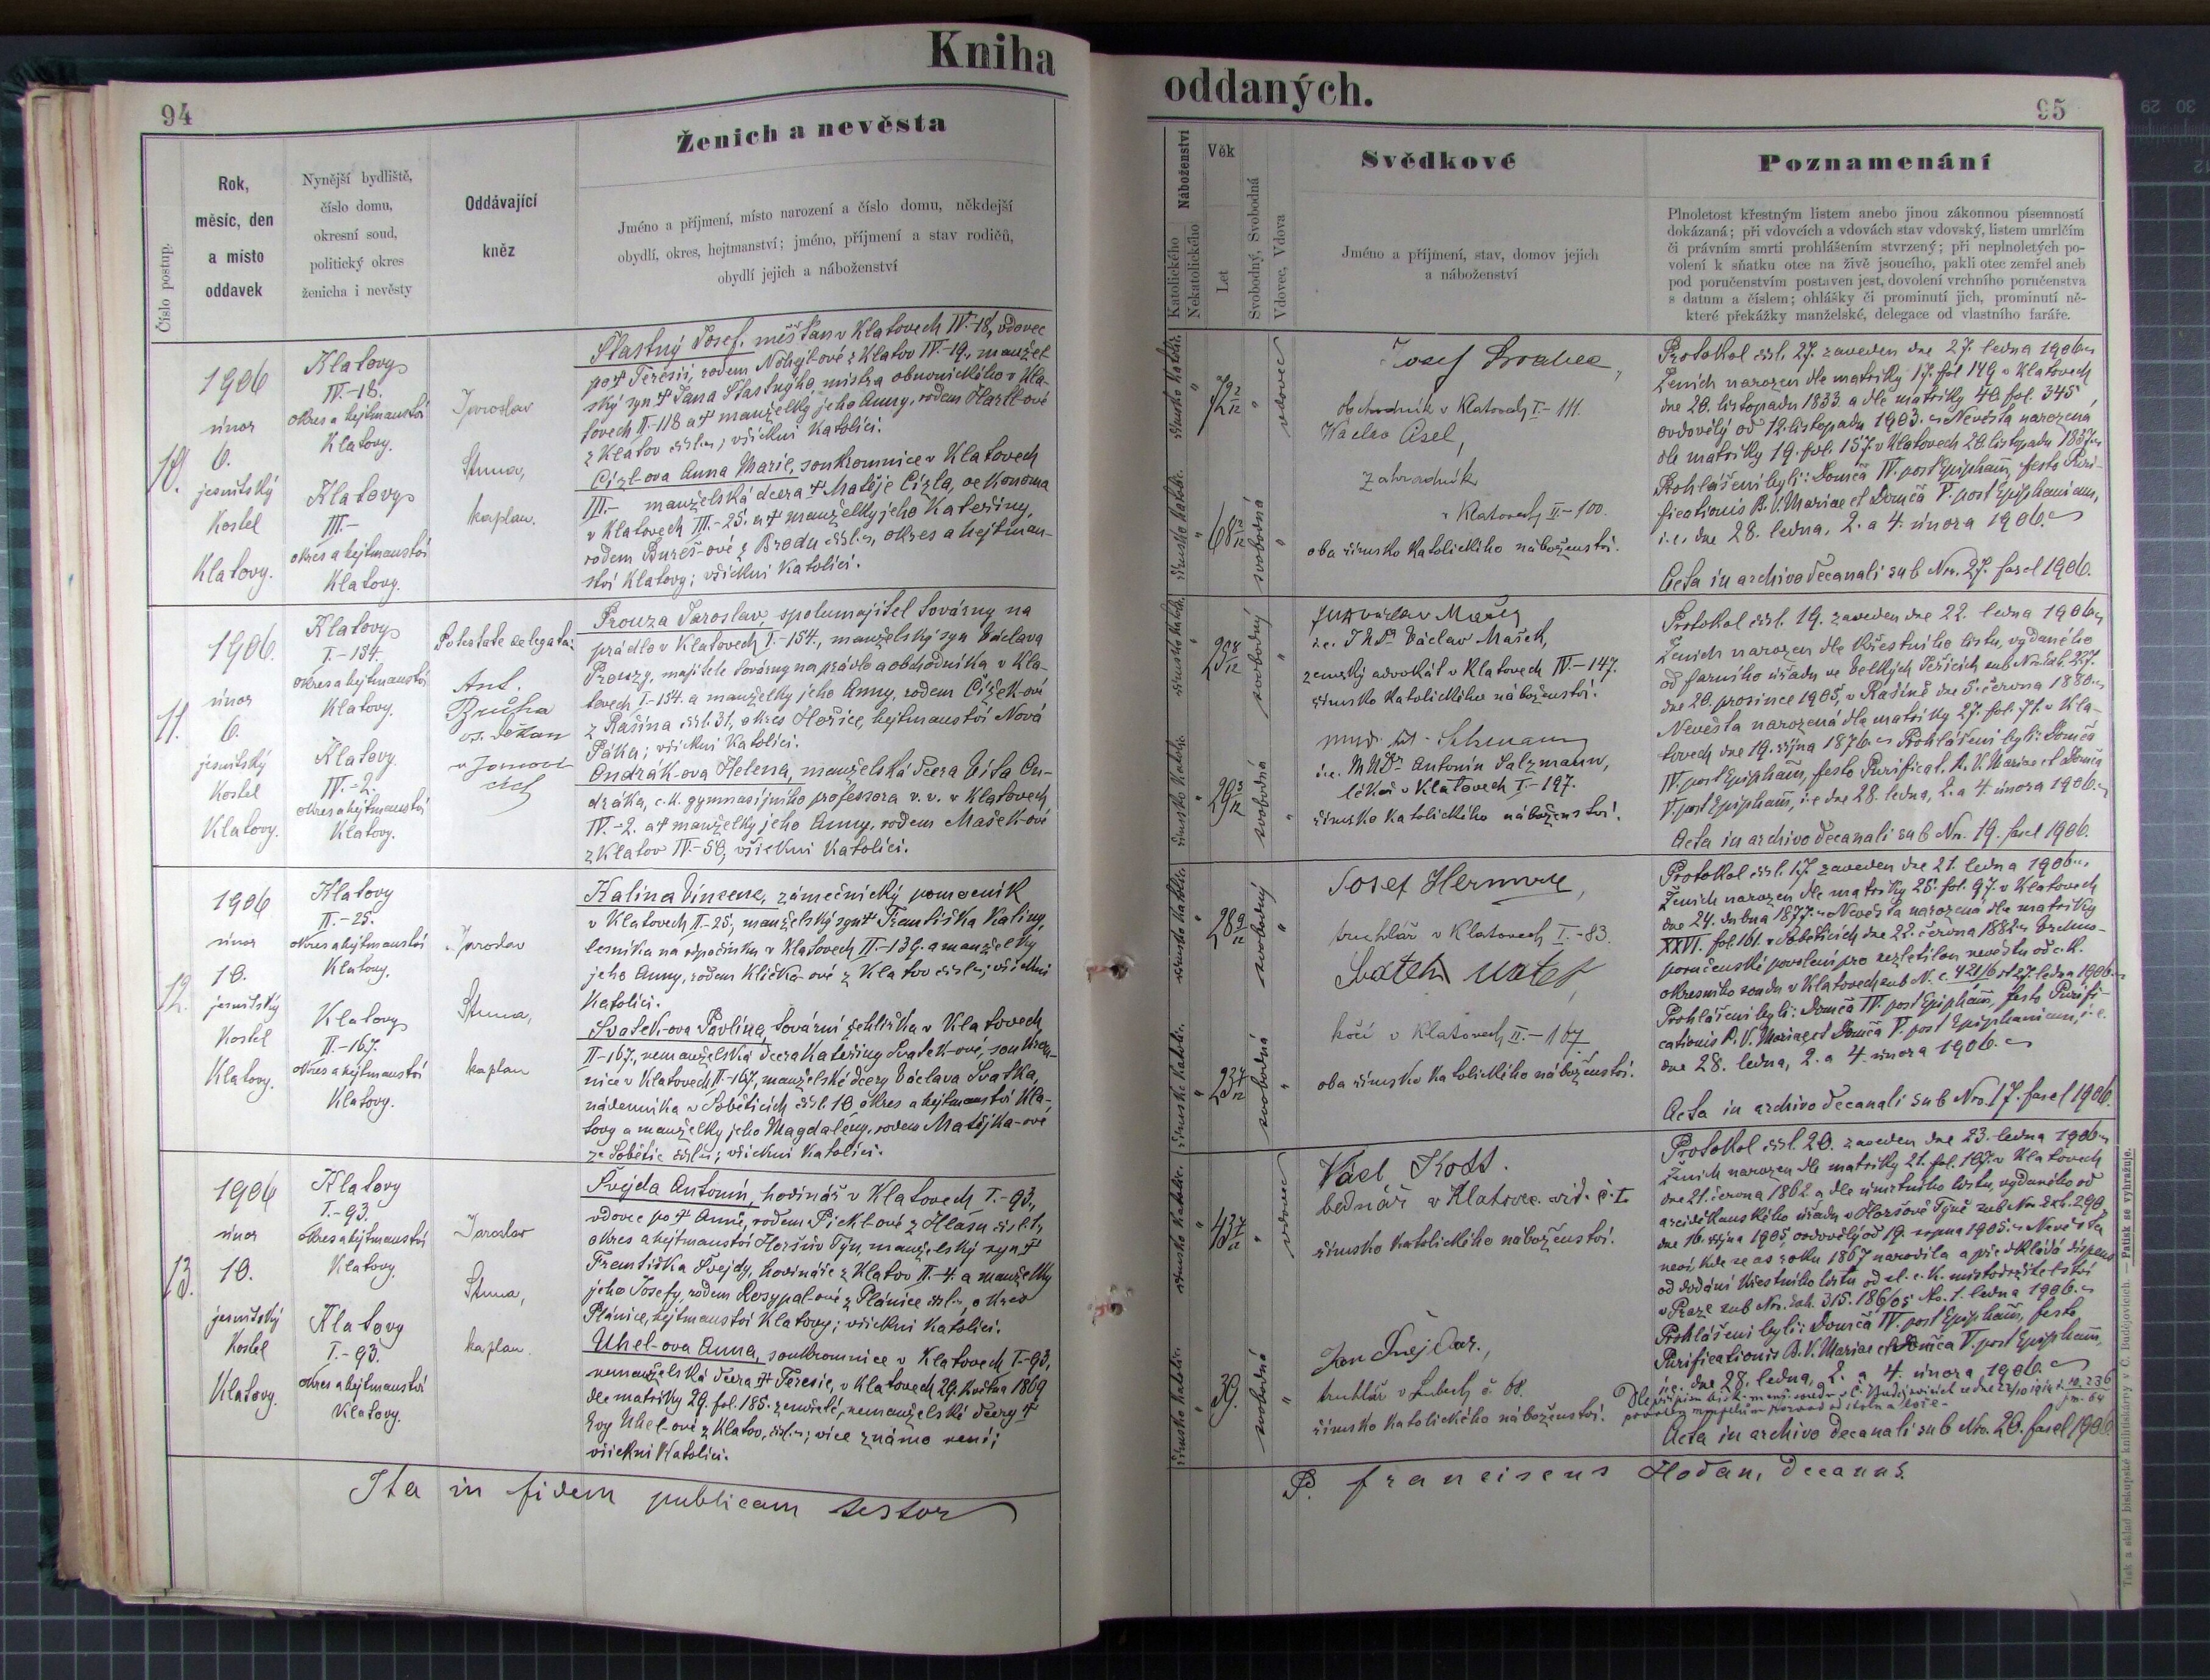 Kniha
94
Ženich a nevěsta
Číslo postup.
Rok,
měsíc, den
a místo
oddavek
Nynější bydliště,
číslo domu,
okresní soud,
politický okres
ženicha i nevěsty
Oddávající
kněz
Jméno a příjmení, místo narození a číslo domu, někdejší
obydlí, okres, hejtmanství; jméno, příjmení a stav rodičů,
obydlí jejich a náboženství
10.
1906
únor
6.
jesuitský
Kostel
Klatovy.
Klatovy
IV.-18.
okres a hejtmanství
Klatovy.
Klatovy
III.-
okres a hejtmanství
Klatovy.
Jaroslav
kaplan.
Šťastný Josef, měšťan v Klatovech IV.-18, vdovec
po † Teresii, rodem z Klatov IV.-19., manžel-
ský syn † Jana Šťastného mistra obuvnického v Kla-
tovech II.-118 a † manželky jeho Anny, rodem Hartl-ové
z Klatov čísl.; všickni Katolíci.
Cízl-ova Anna Marie, soukromnice v Klatovech
III.- manželská dcera † Matěje Cízla, oekonoma
v Klatovech III.-25. a † manželky jeho Kateřiny,
rodem Bureš-ové z Brodu čísl., okres a hejtman-
ství Klatovy; všickni Katolíci.
11.
1906.
únor
6.
jesuitský
Kostel
Klatovy.
Klatovy
I.-154.
okres a hejtmanství
Klatovy.
Klatovy.
IV.-2.
okres a hejtmanství
Klatovy.
Potestate delegata:
Ant.
os. děkan
v
Prouza Jaroslav, spolumajitel továrny na
prádlo v Klatovech I.-154., manželský syn Václava
Prouzy, majitele továrny na prádlo a obchodníka v Kla-
tovech I.-154. a manželky jeho Anny, rodem Čížek-ové
z Rašína čsl. 31., okres Hořice, hejtmanství Nová
Páka; všickni Katolíci.
Ondrák-ova Helena, manželská dcera Víta On-
dráka, c.k. gymnasijního professora v. v. v Klatovech
IV.-2. a † manželky jeho Anny, rodem Mašek-ové
z Klatov IV.-50; všickni Katolíci.
12.
1906
únor
10.
jesuitský
Kostel
Klatovy.
Klatovy
II.-25.
okres a hejtmanství
Klatovy.
Klatovy
II.-167.
okres a hejtmanství
Klatovy.
Jaroslav
kaplan
Kalina Vincenc, zámečnický pomocník
v Klatovech II.-25, manželský syn † Františka Kaliny,
lesníka na odpočinku v Klatovech II.-139. a manželky
jeho Anny, rodem Klička-ové z Klatov čísla; všickni
Katolíci.
Svatek-ova Pavlína, tovární žehlířka v Klatovech
II-167., nemanželská dcera Kateřiny Svatek-ové, soukrom-
nice v Klatovech II.-167, manželské dcery Václava Svatka,
nádenníka v Soběticích čísl. 10 okres a hejtmanství Kla-
tovy a manželky jeho Magdalény, rodem Matějka-ové
ze Sobětic čísla; všickni Katolíci.
13.
1906
únor
10.
jesuitský
Kostel
Klatovy.
Klatovy
I.-93.
okres a hejtmanství
Klatovy.
Klatovy
I.-93.
okres a hejtmanství
Klatovy.
Jaroslav
kaplan.
Švejda Antonín, hodinář v Klatovech I.-93.,
vdovec po † Anně, rodem Pickl-ové z
okres a hejtmanství Horšův Týn, manželský syn †
Františka Švejdy, hodináře z Klatov II.-4. a manželky
jeho Josefy, rodem Rosypal-ové z Plánice čísl., okres
Plánice, hejtmanství Klatovy; všickni Katolíci.
Uhel-ova Anna, soukromnice v Klatovech I.-93,
nemanželská dcera † Teresie, v Klatovech 29. Května 1869
dle matriky 29. fol. 185. zemřelé, nemanželské dcery †
Evy Uhel-ové z Klatov, čísl.; více známo není;
všickni Katolíci.
Ita in fidem publicam testor
oddaných.
95
Náboženství
Katolického
Nekatolického
Věk
Let
Svobodný, Svobodná
Vdovec, Vdova
Svědkové
Jméno a příjmení, stav, domov jejich
a náboženství
Poznamenání
Plnoletost křestným listem anebo jinou zákonnou písemností
dokázaná; při vdovcích a vdovách stav vdovský, listem umrlčím
či právním smrti prohlášením stvrzený; při neplnoletých po-
volení k sňatku otce na živě jsoucího, pakli otec zemřel aneb
pod poručenstvím postaven jest, dovolení vrchního poručenstva
s datum a číslem; ohlášky či prominutí jich, prominutí ně-
které překážky manželské, delegace od vlastního faráře.
římsko katolic.
vdovec
římsko katolic.
68
svobodná
Josef
obchodník v Klatovech I.-111.
Zahradník
v Klatovech II-100.
oba římsko Katolického náboženství.
Protokol čsl. 27. zaveden dne 27. ledna 1906.
Ženich narozen dle matriky 17. fol. 149 v Klatovech
dne 20. listopadu 1833. a dle matriky 40. fol. 345
ovdovělý od 12. listopadu 1903. Nevěsta narozena
dle matriky 19. fol. 157. v Klatovech 20. listopadu 1837.
Prohlášeni byli: Domca IV. post Epiphan, festo Puri-
ficationis B.V. Mariae et Domca V. post Epiphaniam,
i.e. dne 28. ledna, 2. a 4. února 1906.
Acta in archivo decanali sub Nro. 27. fascl 1906.
římsko katolic.
25 8/12
svobodný
římsko katolic.
29
svobodná
JUDr Václav Mašek
i.e. JUDr Václav Mašek,
zemský advokát v Klatovech IV.-147.
římsko Katolického náboženství.
i.e. MUDr Antonín Salzmann,
lékař v Klatovech I.-197.
římsko katolického náboženství.
Protokol čsl. 19. zaveden dne 22. ledna 1906.
Ženich narozen dle Křestního listu, vydaného
od farního úřadu ve Velkých Jeřicích sub Nro. Exh. 227.
dne 20. prosince 1905, v Rašíně dne 5. června 1880.
Nevěsta narozená dle matriky 27. fol. 71. v Kla-
tovech dne 19. října 1876. Prohlášeni byli: Domca
IV. post Epiphan, festo Purificat. B. V. Mariae et Domca
V. post Epiphan, i.e. dne 28. ledna, 2. a 4. února 1906.
Acta in archivo decanali sub Nro. 19. fascl 1906.
římsko katolic.
28 9/12
svobodný
římsko katolic.
23 7/12
svobodná
Josef
truhlář v Klatovech I.-83.
kočí v Klatovech II.-167
oba římsko Katolického náboženství.
Protokol čsl. 17. zaveden dne 21. ledna 1906.
Ženich narozen dle matriky 28. fol. 97. v Klatovech
dne 24. dubna 1877. Nevěsta narozená dle matriky
XXVI. fol. 161. v Soběticích dne 22. června 1882. Vrchno-
poručenské povolení pro nezletilou nevěstu od c.k.
okresního soudu v Klatovech sub N. c. 421/6 od 27. ledna 1906.
Prohlášeni byli: Domca IV. post Epiphan, festo Purifi-
cationis B. V. Mariae et Domca V. post Epiphaniam, i.e.
dne 28. ledna, 2. a 4. února 1906.
Acta in archivo decanali sub Nro. 17. fascl 1906.
římsko katolic.
43 7/12
vdovec
římsko katolic.
39.
svobodná
Václ
bednář v Klatovec. vid. č. I.
římsko Katolického náboženství.
Jan
truhlář v Lubech č. 68.
římsko Katolického náboženství.
Protokol čsl. 20. zaveden dne 23. ledna 1906.
Ženich narozen dle matriky 21. fol. 167. v Klatovech
dne 21. června 1862. a dle úmrtního listu, vydaného od
arciděkanského úřadu v Horšově Týně sub Nro. Exh. 290
dne 16. října 1905, ovdovělý od 19. srpna 1905. Nevěsta
neví, kde se as roku 1867 narodila a předkládá dispens
od dodání Křestního listu od sl. c. k. místodržitelství
v Praze sub Nro. Exh. 315.186/05 dto. 1. ledna 1906.
Prohlášeni byli: Domca IV. post Epiphan, festo
Purificationis B. V. Mariae et Domca V. post Epiphan,
i.e. dne 28. ledna, 2. a 4. února 1906.
Acta in archivo decanali sub Nro. 20. fascl 1906.
P. Franciscus Hodan, decanus.
Tisk a sklad biskupské knihtiskárny v Č. Budějovicích. — Patisk se vyhražuje.